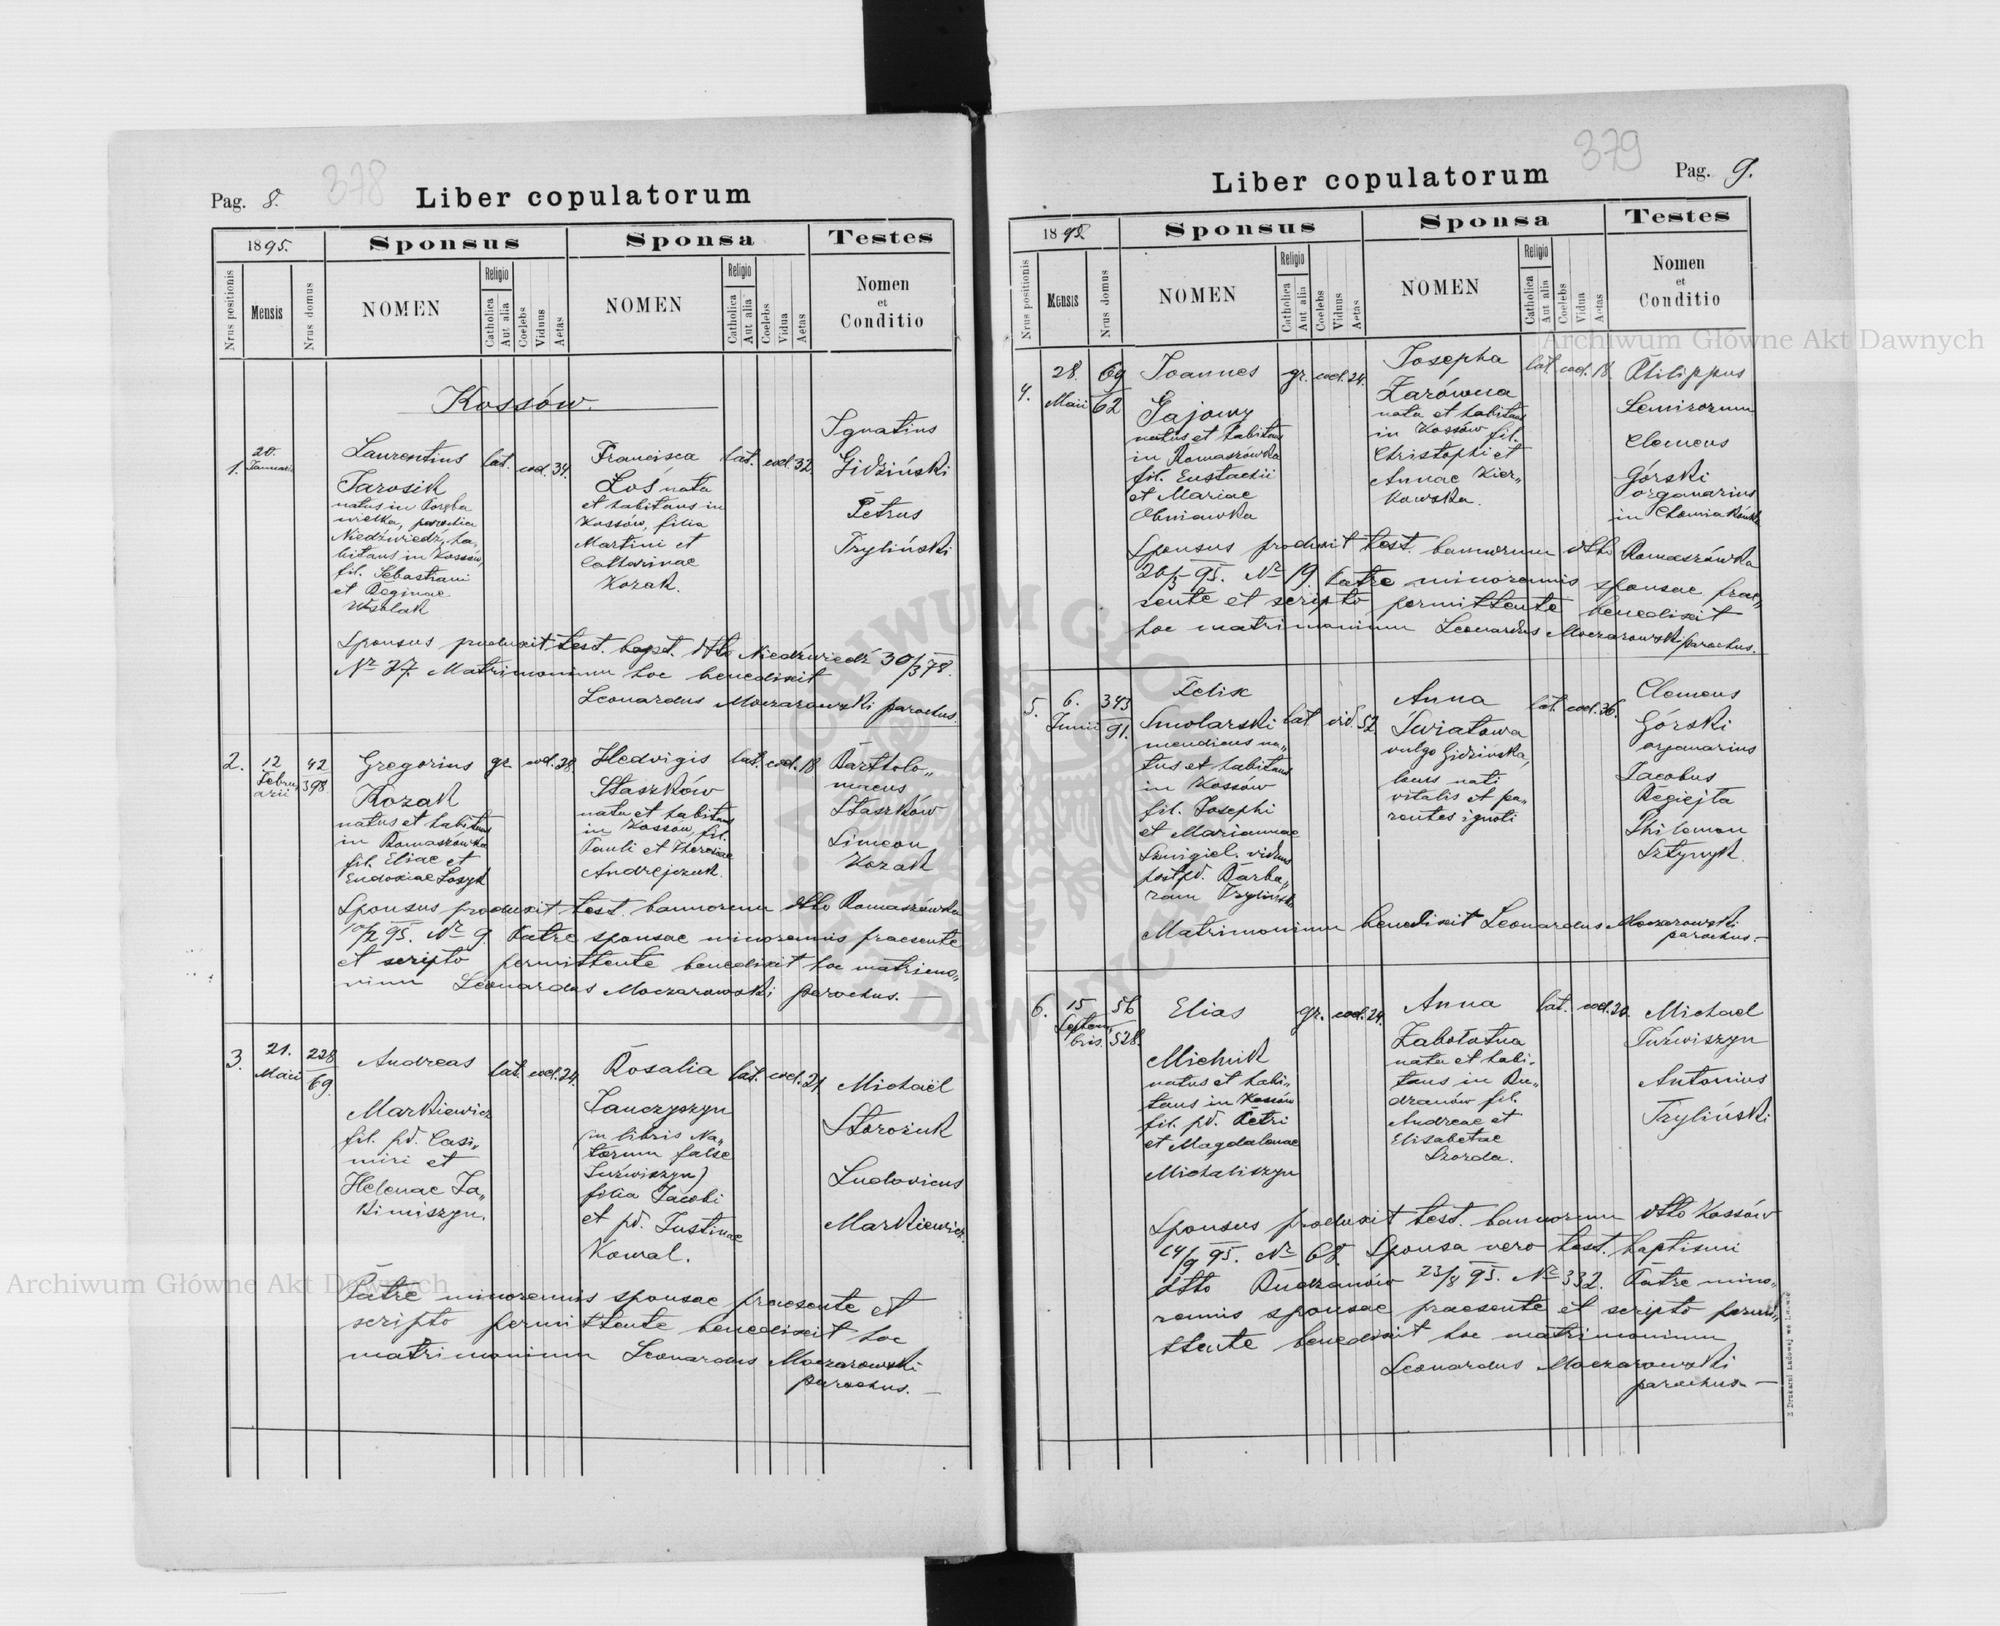 378
Pag. 8.
Liber copulatorum
1895.
Sponsus
Sponsa
Testes
Nrus positionis
Mensis
Nrus domus
NOMEN
Religio
Catholica
Aut alia
Coelebs
Viduus
Aetas
NOMEN
Religio
Catholica
Aut alia
Coelebs
Vidua
Aetas
Nomen
et
Conditio
Kossów.
1.
20.
Januarii
Laurentius
Jarosik
natus in Poręba
wielka, parochia
Niedźwiedz, ha-
bitans in Kossów,
fil. Sebastiani
et Reginae
Wsolak
lat. coel. 34.
Francisca
Łoś nata
et habitans in
Kossów, filia
Martini et
Catharinae
Kozak.
lat. coel. 32
Ignatius
Gidziński
Petrus
Tryliński
Sponsus produxit test. bapt. dtto Niedźwiedź 30/3 78.
Nr 37. Matrimonium hoc benedixit
Leonardus Moczarowski parochus.
2.
12
Febru
arii
42
398.
Gregorius
Kozak
natus et habitans
in Romaszówka
fil. Eliae et
Eudoxiae Łosyk
gr. coel. 28
Hedvigis
Staszków
nata et habitans
in Kossów, fil.
Pauli et Theresiae
Andrejczuk.
lat. coel. 18
Bartholo„
maeus
Staszków
Simeon
Kozak
Sponsus produxit test. bannorum dtto Romaszówka
10/2 95. Nr 9. Patre sponsae minorennis praesente
et scripto permittente benedixit hoc matrimo„
nium Leonardus Moczarowski parochus. —
3.
21.
Maii
228
69.
Andreas
Markiewicz
fil. pd. Casi„
miri et
Helenae Ja„
kimiszyn.
lat. coel. 24.
Rosalia
Janczyszyn
(in libris Na„
torum false
Juźwiszyn)
filia Jacobi
et pd. Justinae
Kowal.
lat. coel. 21.
Michaël
Storożuk
Ludovicus
Markiewicz.
Patre minorennis sponsae praesente et
scripto permittente benedixit hoc
matrimonium Leonardus Moczarowski
parochus. —
379
Liber copulatorum
Pag. 9.
1895.
Sponsus
Sponsa
Testes
Nrus positionis
Mensis
Nrus domus
NOMEN
Religio
Catholica
Aut alia
Coelebs
Viduus
Aetas
NOMEN
Religio
Catholica
Aut alia
Coelebs
Vidua
Aetas
Nomen
et
Conditio
4.
28.
Maii
69
62
Joannes
Gajowy
natus et habitans
in Romaszówka
fil. Eustachii
et Mariae
gr. coel. 24.
Josepha
Żarówna
nata et habitans
in Kossów fil.
Christophi et
Annae Kier„
kowska.
lat. coel. 18.
Philippus
Clemens
Górski
organarius
in
Sponsus produxit test. bannorum dtto Romaszówka
26/5 95. Nr 19. Patre minorennis sponsae prae„
sente et scripto permittente benedixit
hoc matrimonium Leonardus Moczarowski parochus.
5.
6.
Junii
343
91.
Felix
Smolarski
mendicus na„
tus et habitans
in Kossów
fil. Josephi
et Mariannae
Szmigiel. viduus
post pd. Barba„
ram Tryliński
lat. vid. 52.
Anna
Światowa
vulgo Gidzińska,
locus nati
vitalis et pa„
rentes ignoti
lat. coel. 36.
Clemens
Górski
organarius
Jacobus
Regiejta
Philemon
Sztynyk.
Matrimonium benedixit Leonardus Moczarowski
parochus. —
6.
15
Septem
bris.
56
528.
Elias
Michnik
natus et habi„
tans in Kossów
fil. pd. Petri
et Magdalenae
Michaliszyn
gr. coel. 24.
Anna
Zabolotna
nata et habi-
tans in Bu„
dzanów fil.
Andreae et
Elisabetae
Szozda.
lat. coel. 20.
Michael
Juźwiszyn
Antonius
Tryliński
Sponsus produxit test. bannorum dtto Kossów
14/9 95. Nr 68. Sponsa vero test. baptismi
dtto Budzanów 23/8 95. Nr 332. Patre mino„
rennis sponsae praesente et scripto permi„
ttente benedixit hoc matrimonium
Leonardus Moczarowski
parochus. —
Z Drukarni Ludowej we Lwowie
Archiwum Główne Akt Dawnych
Archiwum Główne Akt Dawnych
ARCHIWUM GŁÓWNE AKT DAWNYCH